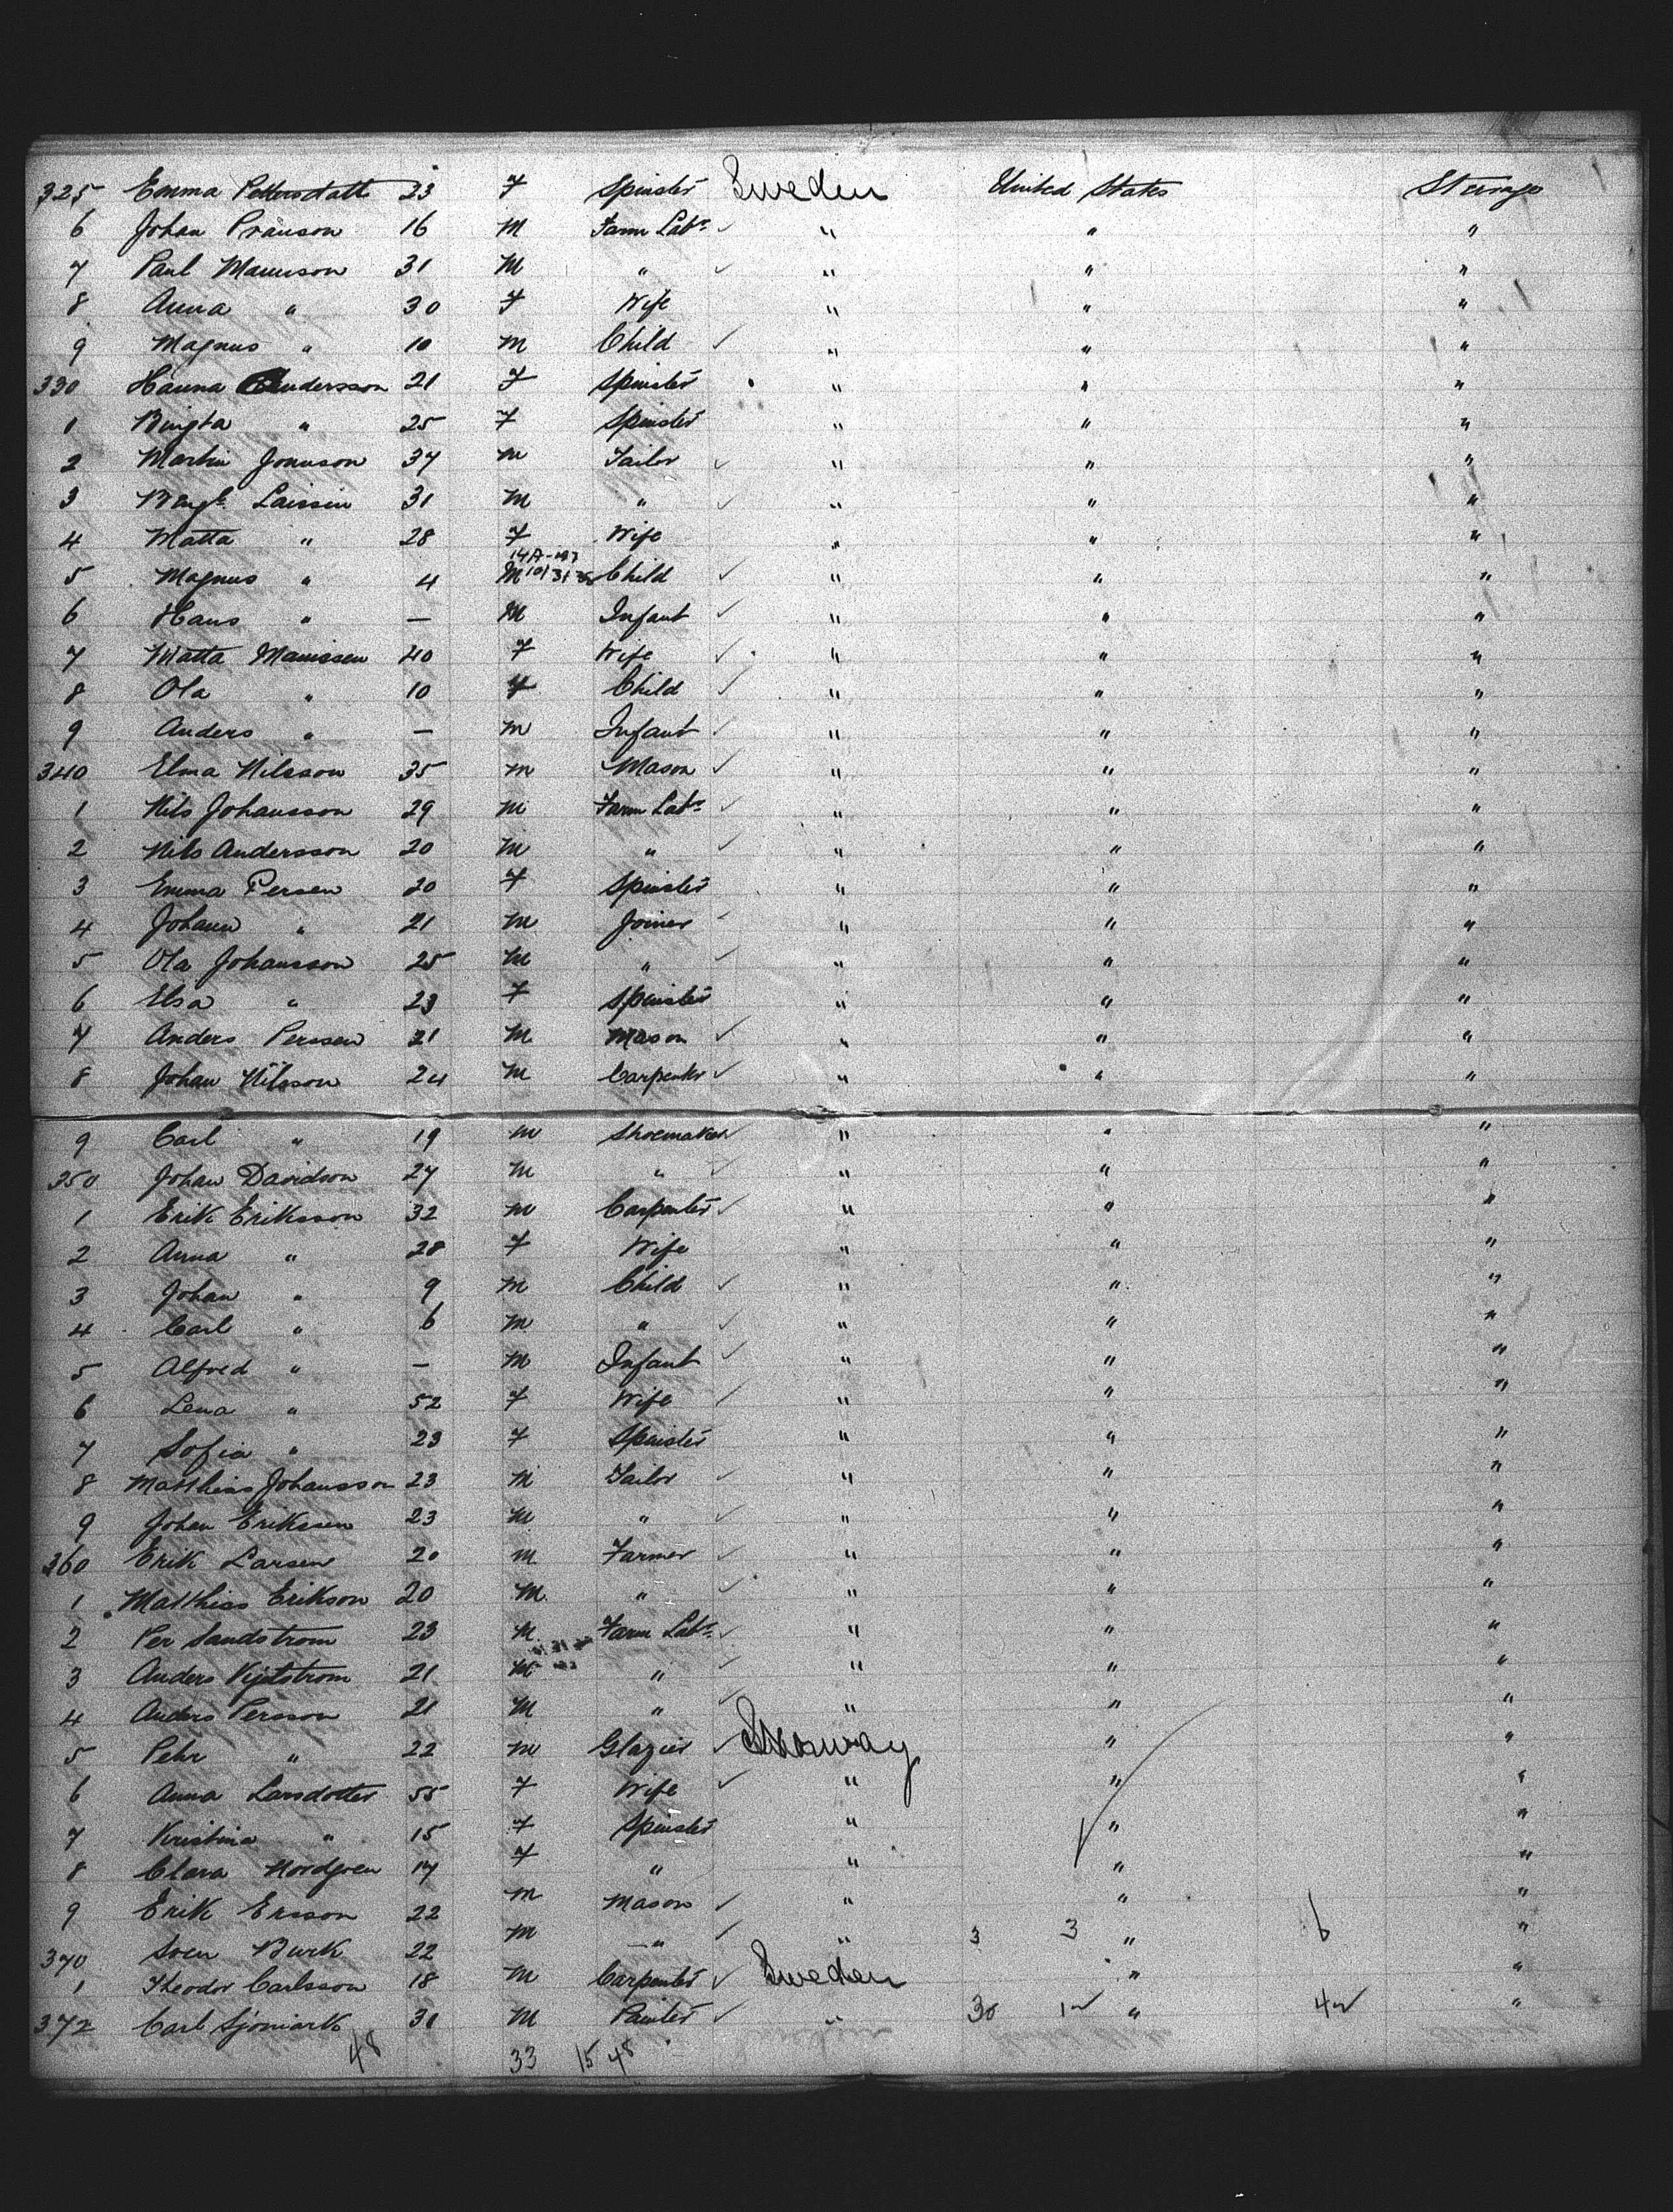 325 Emma Pettersdatt 23 F Spinstr Sweden United States Steerage
6 Johan Pranson 16 M Farm Labr " " "
7 Paul Maunson 31 M " " " "
8 Anna " 30 F Wife " " "
9 Magnus " 10 M Child " " "
330 Hanna Andersson 21 F Spinstr " " "
1 Bingta " 25 F Spinstr " " "
2 Martin Jonnson 37 M Tailor " " "
3 Bengt 31 M " " " "
4 Matta " 28 F Wife " " "
5 Magnus " 4 M Child " " "
6 Hans " — M Infant " " "
7 Matta Manissen 40 F Wife " " "
8 Ola " 10 Child " " "
9 Anders " — M Infant " " "
340 Elma Nilsson 35 M Mason " " "
1 Nils Johansson 29 M Farm Labr " " "
2 Nils Andersson 20 M " " " "
3 Emma Persen 20 F Spinstr " " "
4 Johann " 21 M Joiner " " "
5 Ola Johansson 25 M " " " "
6 Elsa " 23 F Spinstr " " "
7 Anders Perssen 21 M Mason " " "
8 Johan Nilsson 24 M Carpentr " " "
9 Carl " 19 M Shoemaker " " "
350 Johan Davidson 27 M " " " "
1 Erik Eriksson 32 M Carpenter " " "
2 Anna " 28 F Wife " " "
3 Johan " 9 M Child " " "
4 Carl " 6 M " " " "
5 Alfred " — M Infant " " "
6 Lena " 52 F Wife " " "
7 Sofia " 23 F Spinstr " " "
8 Matthias Johansson 23 M Tailor " " "
9 Johan Erikssen 23 M " " " "
360 Erik Larsen 20 M Farmer " " "
1 Matthias Erikson 20 M " " " "
2 Per Sandstrom 23 M Farm Labr " " "
3 Anders 21 M " " " "
4 Anders Persson 21 M " " " "
5 Pehr " 22 M Glazier Norway " "
6 Anna Larsdotter 55 F Wife " " "
7 Kristina " 15 F Spinstr " " "
8 Clara Nordgren 17 F " " " "
9 Erik Ersson 22 M Mason " " "
370 Sven Burk 22 M " " 3 3 " 6 "
1 Theodor Carlsson 18 M Carpenter Sweden " "
372 Carl Sjomark 31 M Painter " 30 12 " 42 "
48 33 15 48